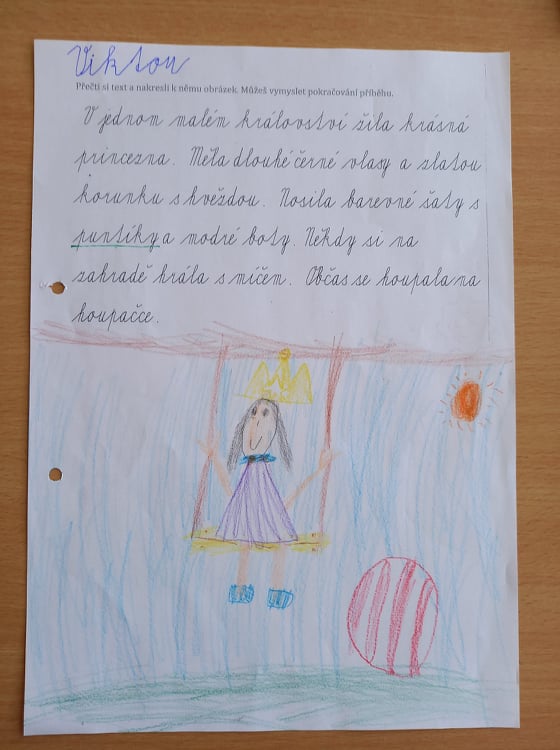 Viktor
Přečti si text a nakresli k němu obrázek. Můžeš vymyslet pokračování příběhu.
V jednom malém království žila krásná
princezna. Měla dlouhé černé vlasy a zlatou
korunku s hvězdou. Nosila barevné šaty s
puntíky a modré boty. Někdy si na
zahradě hrála s míčem. Občas se houpala na
houpačce.